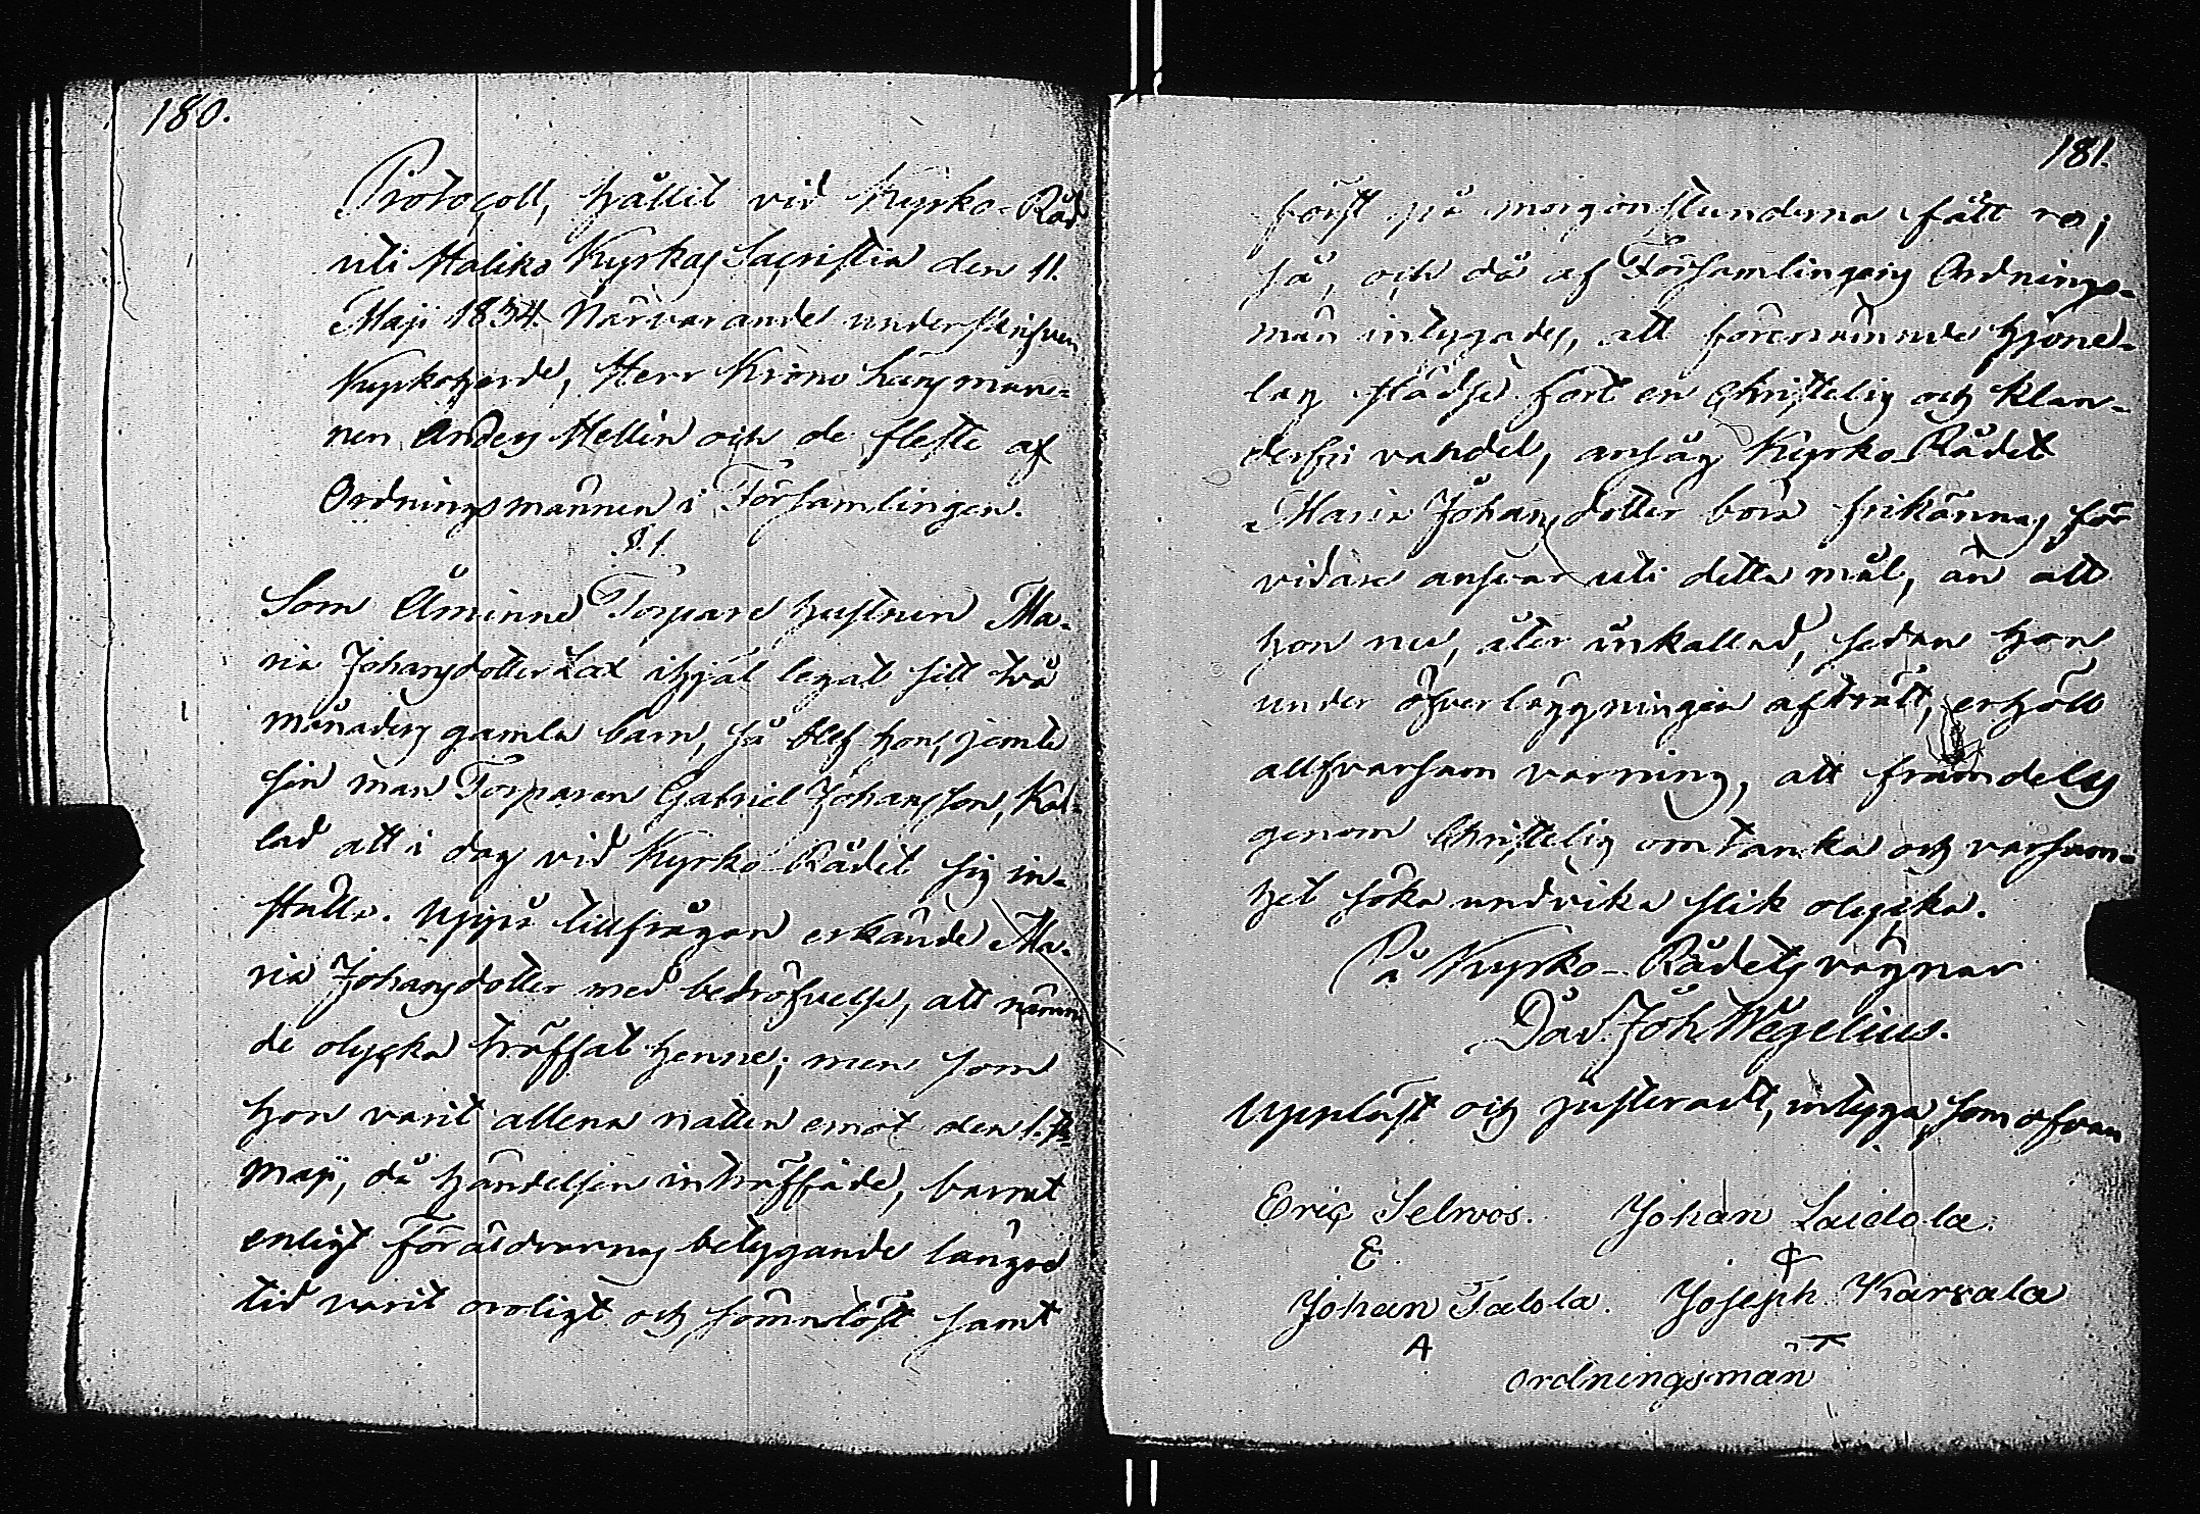 180.
Protocoll, hållit vid Kyrko-Råd
uti Haliko Kyrkas Sacristia den 11.
Maji 1834. Närvarande underskrifven
Kyrkoherde, Herr Krono Länsman-
nen Anders Hellin och de fleste af
Ordningsmännen i Församlingen.
§.1.
Som Åminne Torpare hustrun Ma-
ria Johansdotter Lax ihjäl legat sitt två
månaders gamla barn, så blef hon, jemte
sin man Torparen Gabriel Johansson, Kal-
lad att i dag vid Kyrko-Rådet sig in-
ställa. Uppå tillfrågan erkände Ma-
ria Johansdotter med bedröfvelse, att nämn
de olycka träffat henne; men som
hon varit allena natten emot den 1.sta
Maji, då händelsen inträffade, barnet
enligt Föräldrarnas betygande längre
tid varit oroligt och sömnlöst samt
181.
först på morgonstunderna fått ro;
så, och då af Församlingens Ordnings-
män intygades, att förenämnde hjone-
lag städse fört en christelig och klan-
derfri vandel, ansåg Kyrko-Rådet
Maria Johansdotter böra frikännas för
vidare ansvar uti detta mål, än att
hon nu, åter inkallad, sedan hon
under öfverläggningen afträtt, erhöll
allfvarsam varning, att framdeles
genom Christelig omtanka och varsam-
het söka undvika slik olycka.
På Kyrko-Rådets vägnar
Dav. Joh. Wegelius.
Uppläst och justeradt, intyga, som ofvan
Eric Selvos. Johan Laidola.
E.
Johan Talola. Joseph Karvala
A
ordningsmän